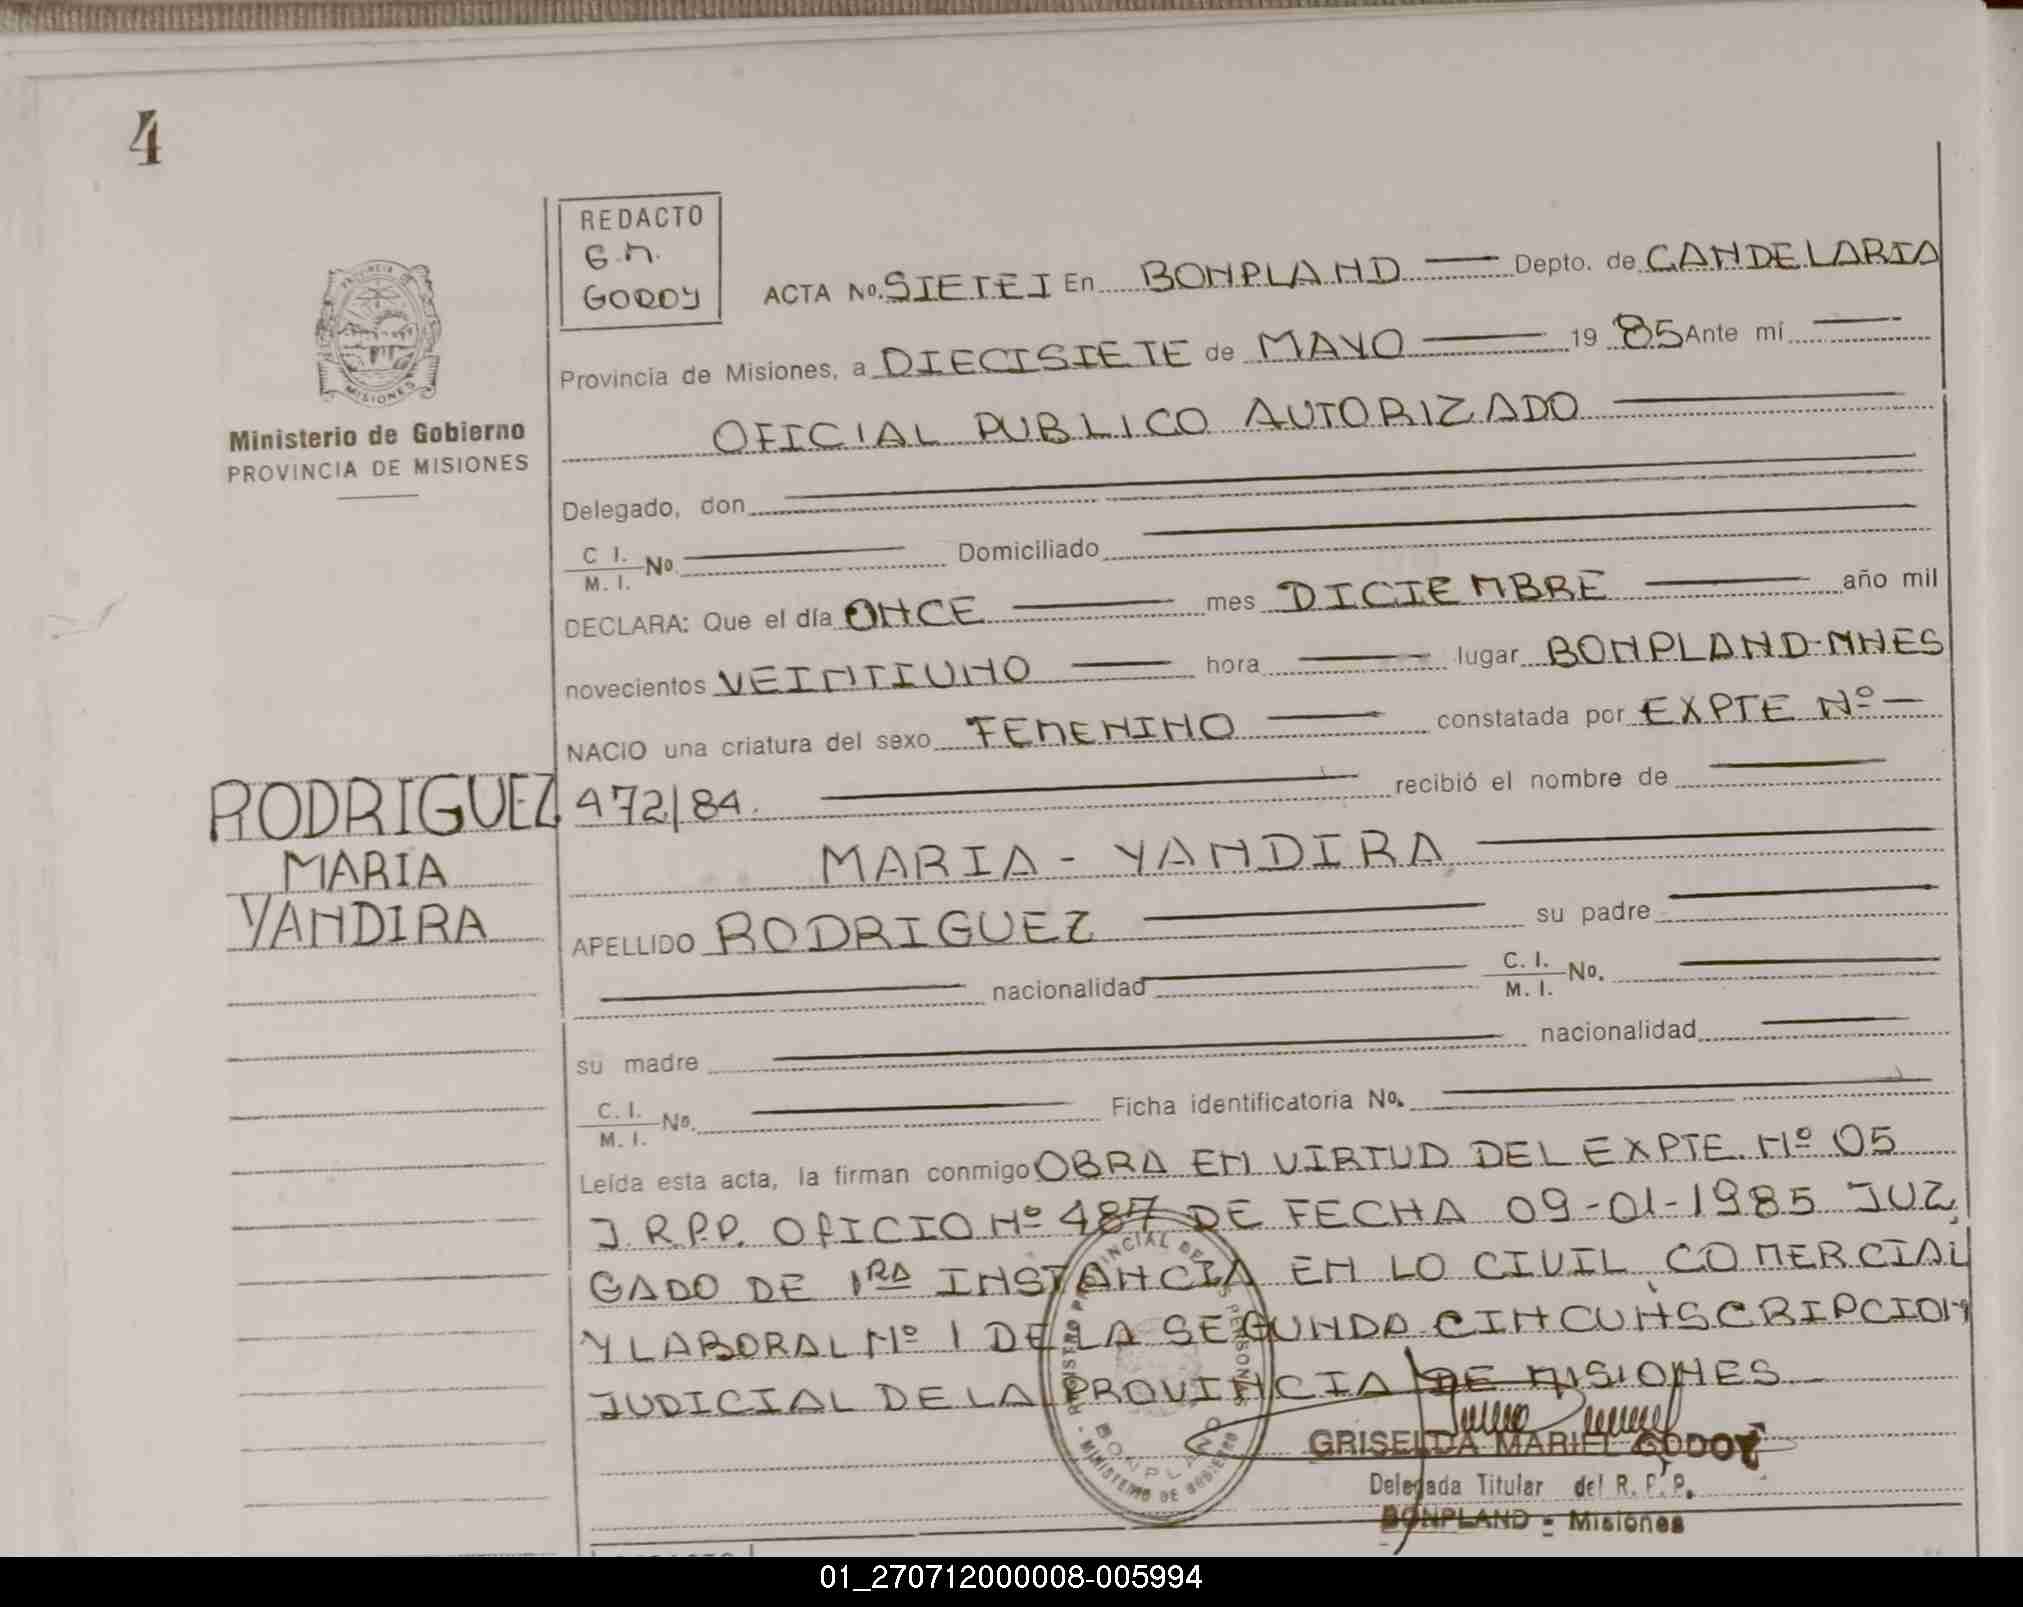 4
REDACTO
G.M.
GODOY
ACTA No. SIETE I En BONPLAND Depto. de CANDELARIA
Provincia de Misiones, a DIECISIETE de MAYO 19 85 Ante mí
OFICIAL PUBLICO AUTORIZADO
PROVINCIA DE MISIONES
Ministerio de Gobierno
PROVINCIA DE MISIONES
Delegado, don
C I. No. Domiciliado
M. I.
DECLARA: Que el día ONCE mes DICIEMBRE año mil
novecientos VEINTIUNO hora lugar BONPLAND-MNES
NACIO una criatura del sexo FEMENINO constatada por EXPTE Nº
RODRIGUEZ
MARIA
YANDIRA
472/84. recibió el nombre de
MARIA - YANDIRA
APELLIDO RODRIGUEZ su padre
nacionalidad C. I. No.
M. I.
su madre nacionalidad
C. I. No. Ficha identificatoria No.
M. I.
Leída esta acta, la firman conmigo OBRA EN VIRTUD DEL EXPTE. Nº 05
J.R.P.P. OFICIO Nº 487 DE FECHA 09-01-1985 JUZ
GADO DE 1RA INSTANCIA EN LO CIVIL, COMERCIAL
Y LABORAL Nº 1 DE LA SEGUNDA CINCUNSCRIPCION
JUDICIAL DE LA PROVINCIA DE MISIONES
REGISTRO PROVINCIAL DE LAS PERSONAS
BONPLAND
MINISTERIO DE GOBIERNO
GRISELDA MARIEL GODOY
Delegada Titular del R. P. P.
BONPLAND - Misiones
01_270712000008-005994